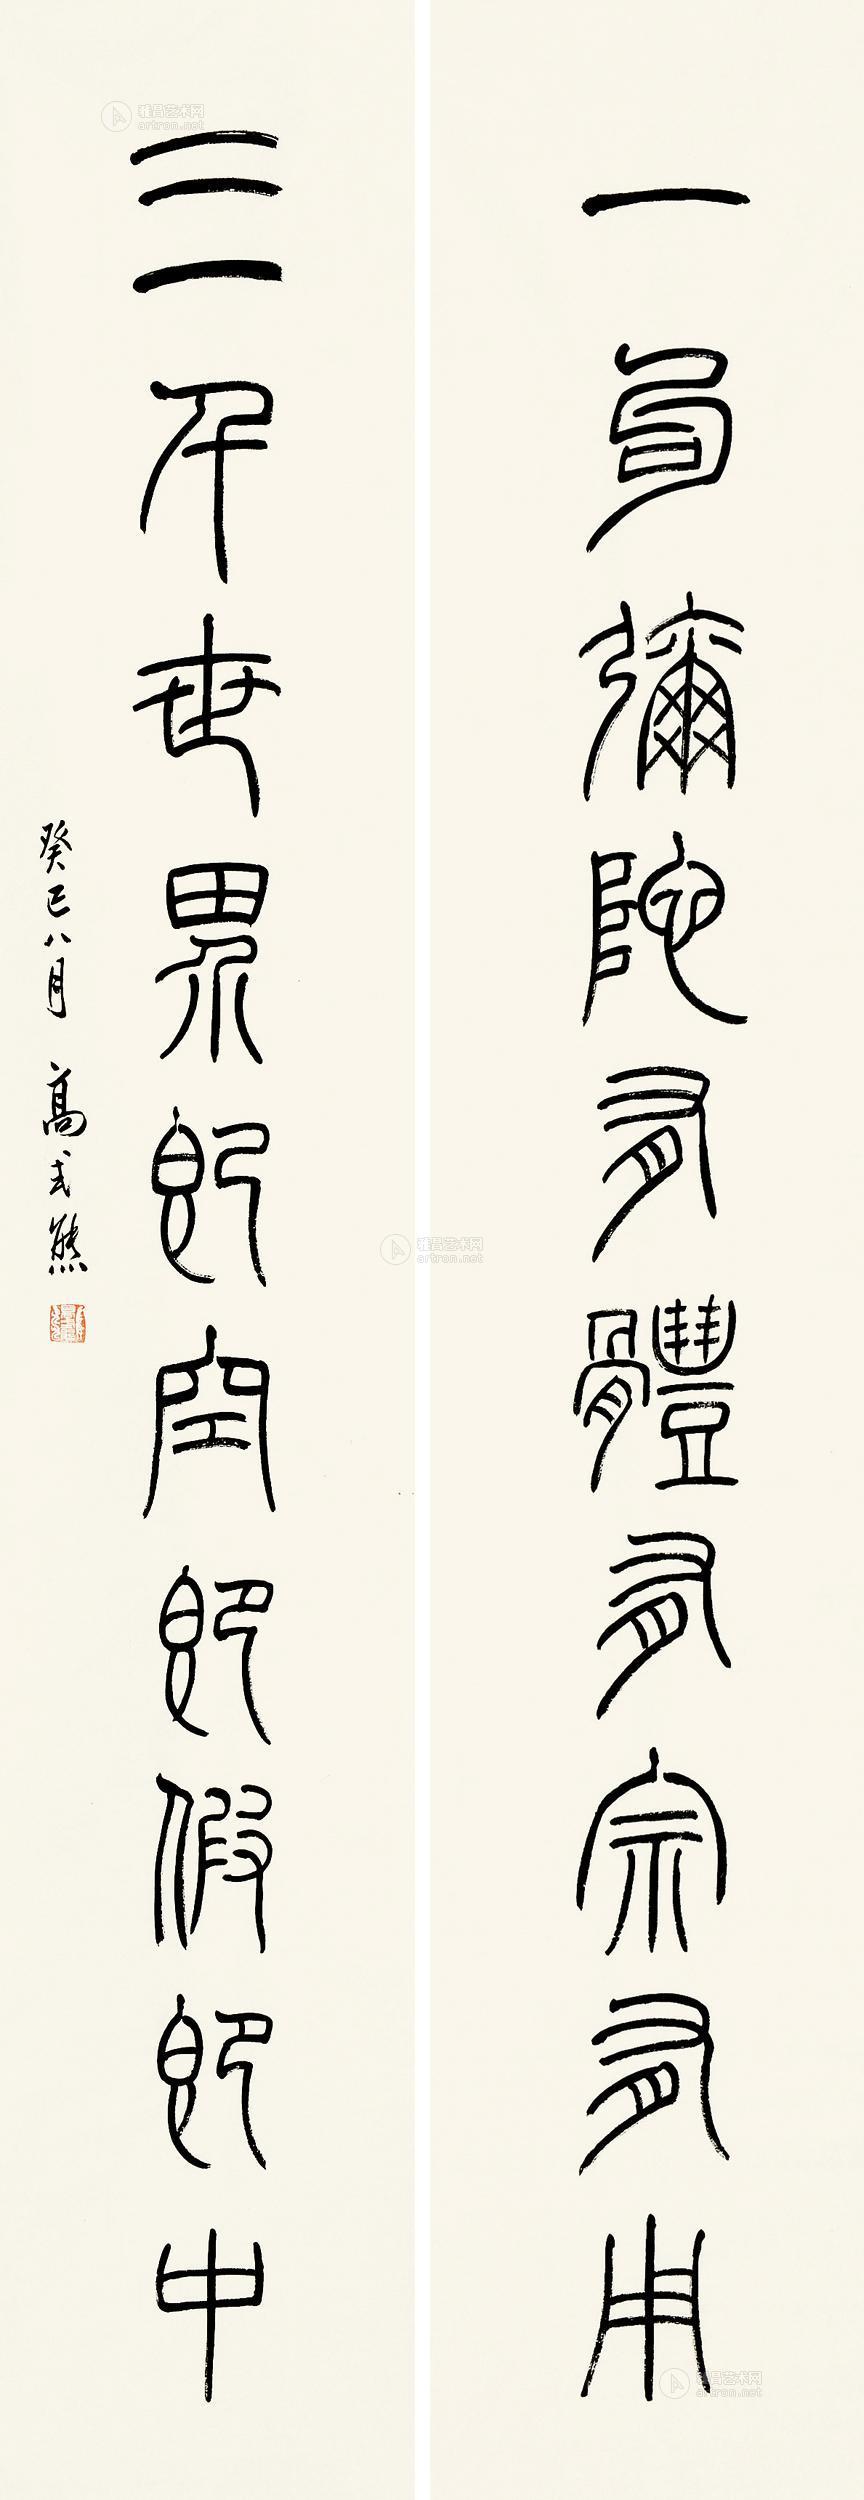 一句彌陀有體有宗有用
三千世界即空即假即中
癸巳八月 高式熊
雅昌艺术网
artron.net
雅昌艺术网
artron.net
雅昌艺术网
artron.net